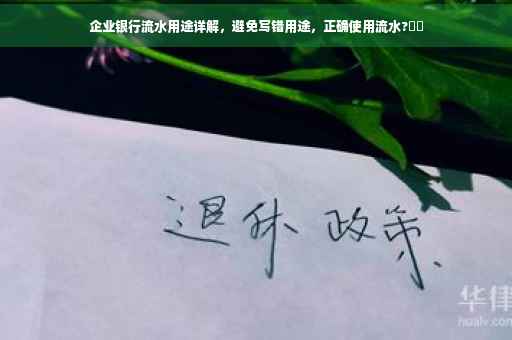 企业银行流水用途详解，避免写错用途，正确使用流水?
退休政策
华律
hualv.com